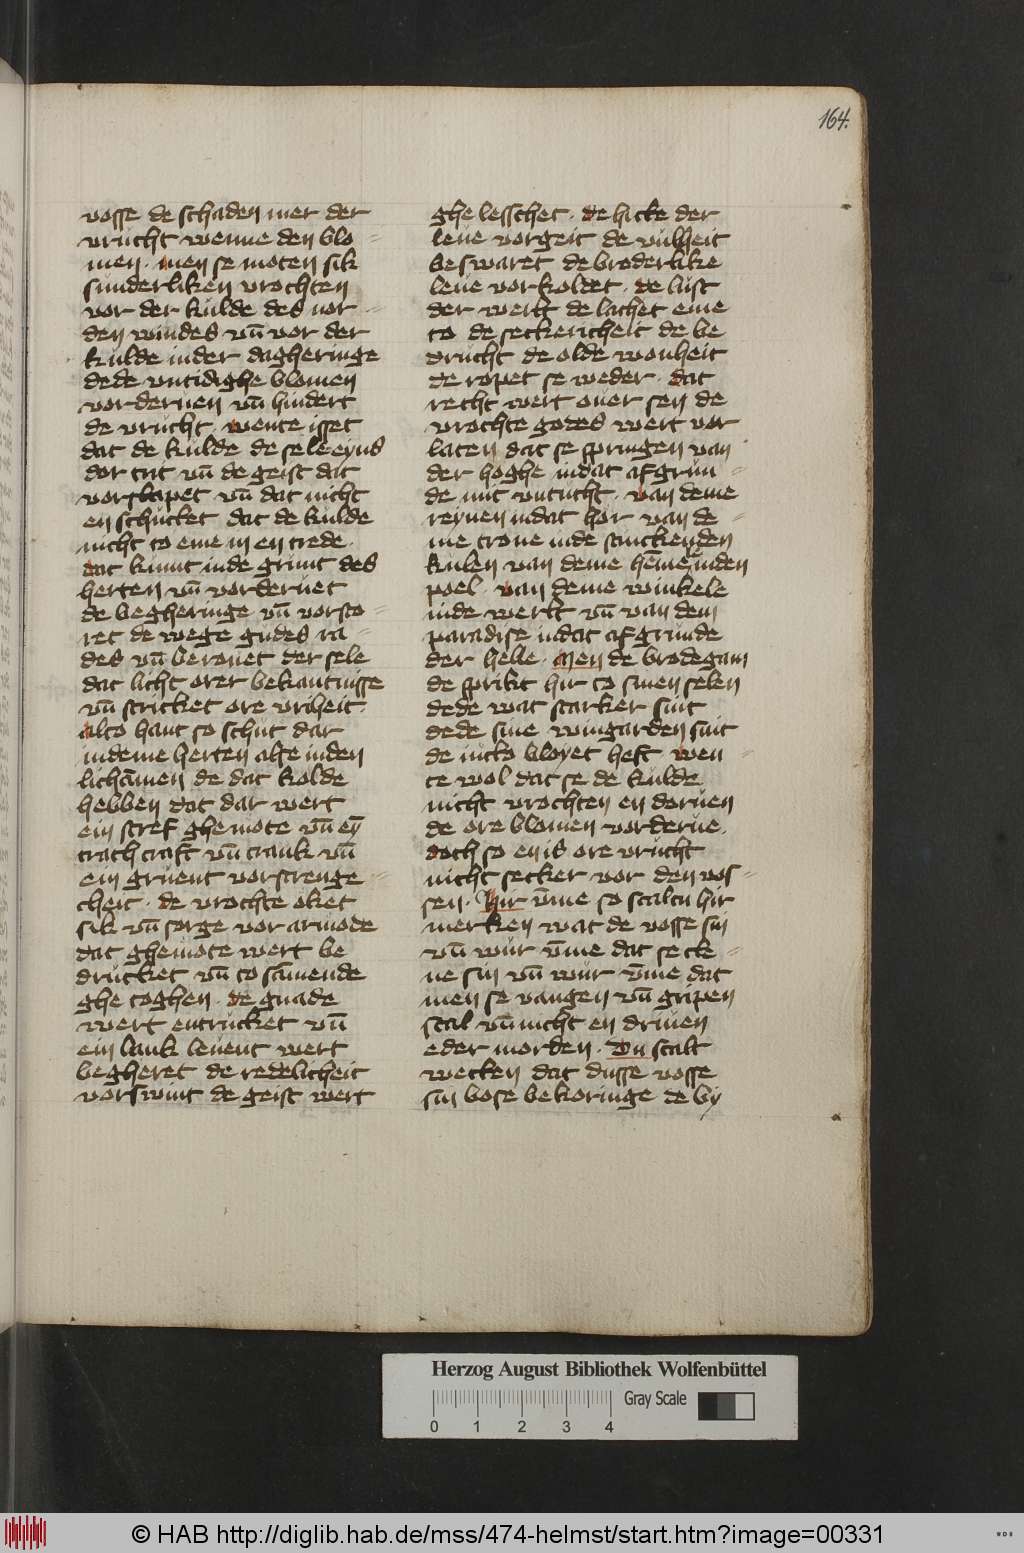 164.
vosse de schaden mer der
vrucht wenne den blo-
men. men se moten sik
sunderliken vrochten
vor der kulde des nor-
den windes vn̄ vor der
kulde in der dagheringe
dede vntidighe blomen
vorderuen vn̄ hindert
de vrucht. wente isset
dat de kulde de sele eyns
dor tut vn̄ de geist dat
vorslapet vn̄ dat nicht
en schucket dat de kulde
nicht to eme in en trede.
dat kumt in de grunt des
herten vn̄ vorderuet
de begheringe vn̄ vorsto-
ret de wege gudes ra-
des vn̄ berouet der sele
dat licht orer bekantnisse
vn̄ stricket ore vriheit.
alto hant so schut dar
in deme herten alse in den
lichāmen de dat kolde
hebben dat dar wert
ein stref ghemote vn̄ eȳ
trach craft vn̄ crank vn̄
ein gruent vorstrenge-
cheit. de vrochte oket
sik vn̄ sorge vor armode
dat ghemote wert be
drucket vn̄ to sāmende
ghe toghen. de gnade
wert entrucket vn̄
ein lank leuent wert
begheret de redelicheit
vorswint de geist wert
ghe lesschet. de hicke der
leue vorgeit de vulheit
beswaret de broderlike
leue vorkoldet. de lust
der werlt de lachet eme
to de seckericheit de be
drucht de olde wonheit
de ropet se weder. dat
recht wert ouer sen de
vrochte godes wert vor
laten dat se springen van
der hoghe in dat afgrun-
de mit vntucht. van deme
reynen in dat hor van de-
me trone in de stinckenden
kulen van deme hēmele in den
poel. van deme winkele
in de werlt vn̄ van dem
paradise in dat afgrunde
der helle. Men de brodegam
de sprikt hir to sinen selen
dede wat starker sint
dede sine wingarden sint
de nicko bloyet heft wen-
te wol dat se de kulde
nicht vrochten en doruen
de ore blomen vorderue.
doch so en is ore vrucht
nicht secker vor den vos-
sen. Hir v̄me so scaltu hir
merken wat de vosse sin
vn̄ wur v̄me dat se cle-
ne sin vn̄ wur v̄me dat
men se vangen vn̄ gripen
scal vn̄ nicht en driuen
eder morden. Du scalt
wecken dat dusse vosse
sin bose bekoringe de by
Herzog August Bibliothek Wolfenbüttel
Gray Scale
0 1 2 3 4
© HAB http://diglib.hab.de/mss/474-helmst/start.htm?image=00331